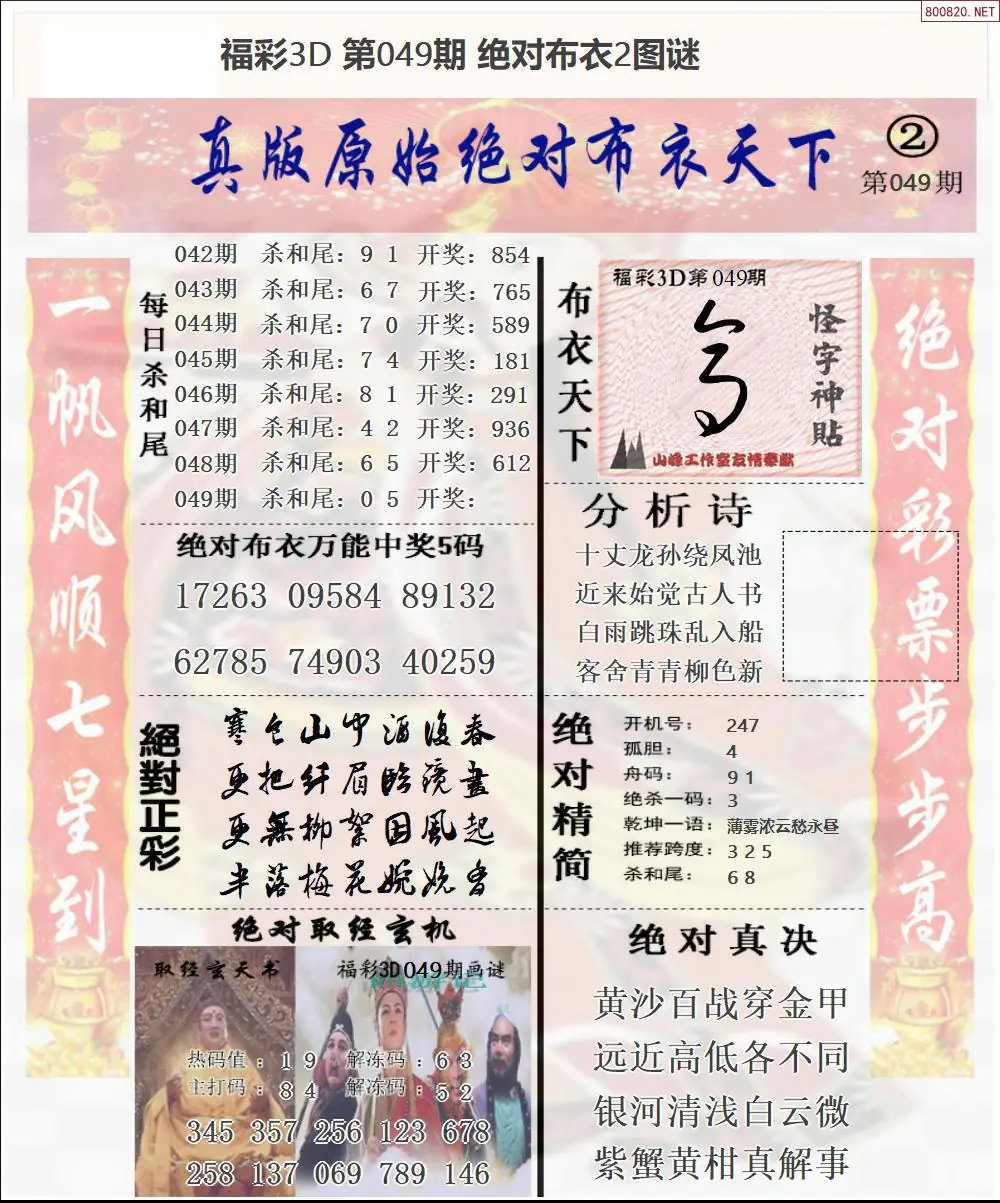 800820.NET
福彩3D 第049期 绝对布衣2图谜
真版原始绝对布衣天下
②
第049期
一帆风顺七星到
每日杀和尾
042期 杀和尾：9 1 开奖：854
043期 杀和尾：6 7 开奖：765
044期 杀和尾：7 0 开奖：589
045期 杀和尾：7 4 开奖：181
046期 杀和尾：8 1 开奖：291
047期 杀和尾：4 2 开奖：936
048期 杀和尾：6 5 开奖：612
049期 杀和尾：0 5 开奖：
绝对布衣万能中奖5码
17263 09584 89132
62785 74903 40259
絕對正彩
寒仓山中酒復春
更把纤眉臨鏡畫
更無柳絮因風起
半落梅花婉娩香
绝对取经玄机
取经玄天书
福彩3D049期画谜
热码值：1 9 解冻码：6 3
主打码：8 4 解冻码：5 2
345 357 256 123 678
258 137 069 789 146
布衣天下
福彩3D第049期
怪字神貼
山峰工作室友情奉献
分析诗
十丈龙孙绕凤池
近来始觉古人书
白雨跳珠乱入船
客舍青青柳色新
绝对精简
开机号：247
孤胆：4
舟码：9 1
绝杀一码：3
乾坤一语：薄雾浓云愁永昼
推荐跨度：3 2 5
杀和尾：6 8
绝对真决
黄沙百战穿金甲
远近高低各不同
银河清浅白云微
紫蟹黄柑真解事
绝对彩票步步高